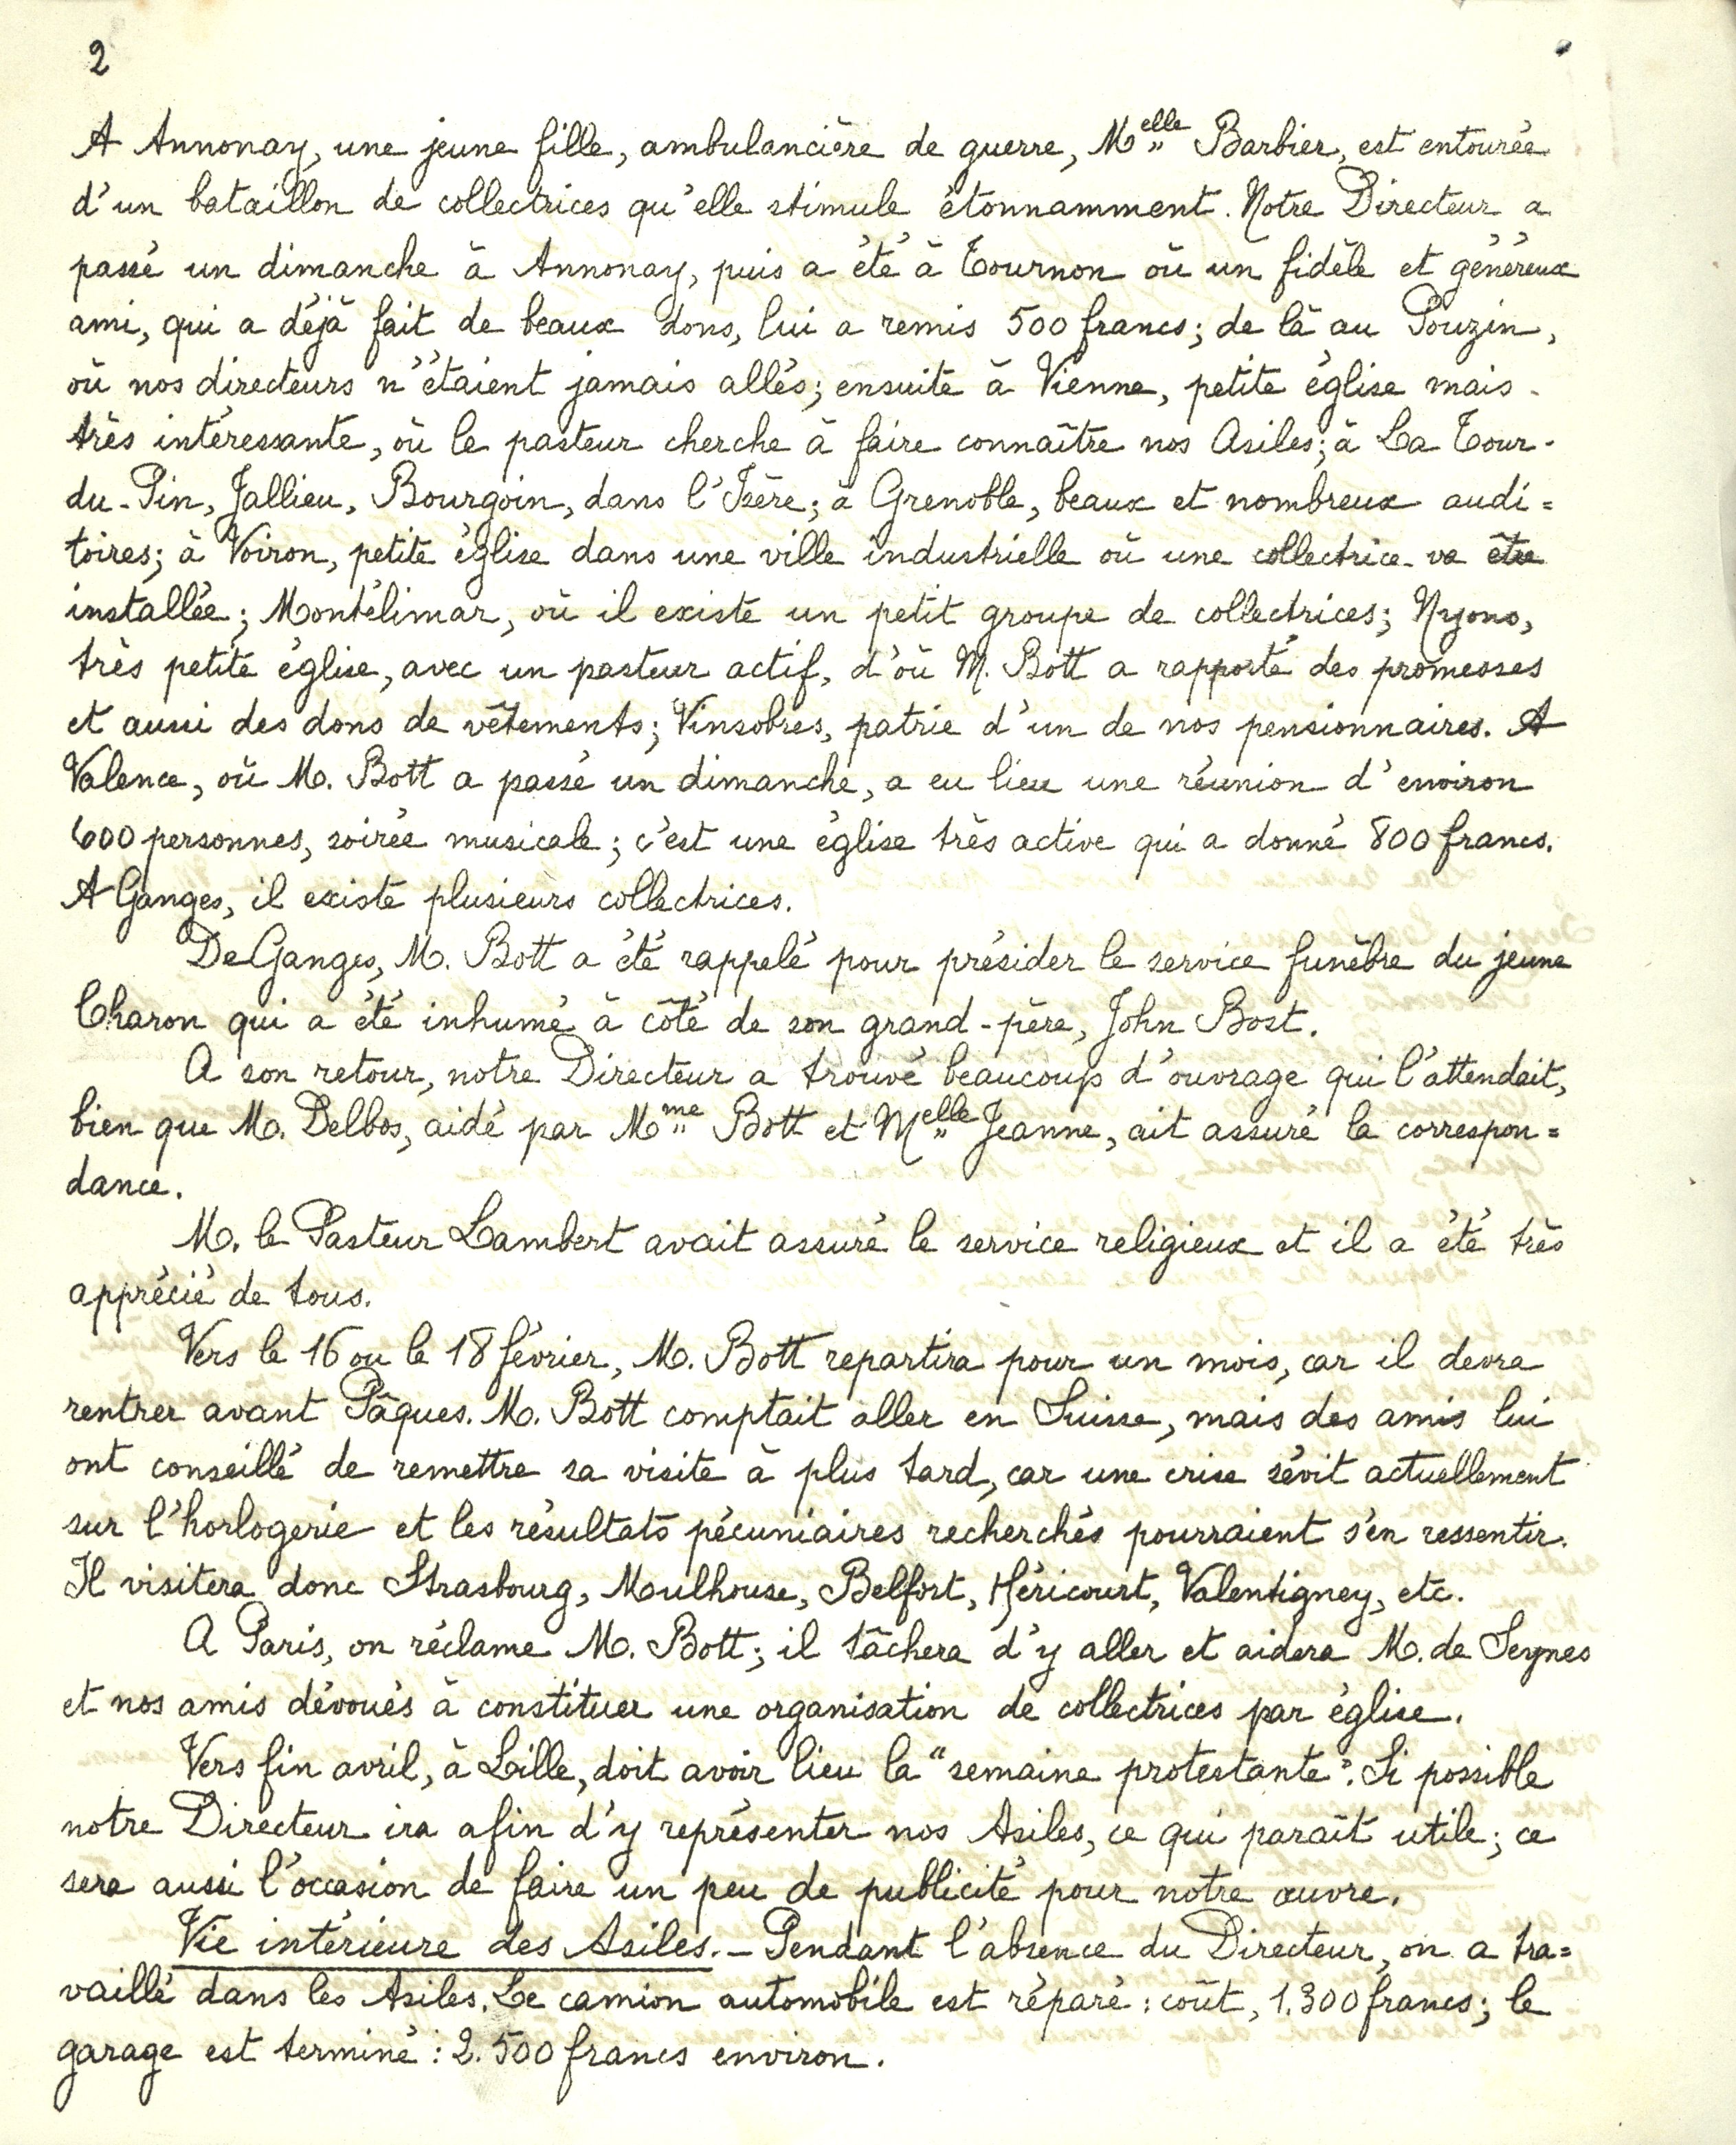 2
A Annonay, une jeune fille, ambulancière de guerre, Melle Barbier, est entourée
d'un bataillon de collectrices qu'elle stimule étonnamment. Notre Directeur a
passé un dimanche à Annonay, puis a été à Tournon où un fidèle et généreux
ami, qui a déjà fait de beaux dons, lui a remis 500 francs; de là au Pouzin,
où nos directeurs n'étaient jamais allés; ensuite à Vienne, petite église mais
très intéressante, où le pasteur cherche à faire connaître nos Asiles; à La Tour-
du-Pin, Jallieu, Bourgoin, dans l'Isère; à Grenoble, beaux et nombreux audi=
toires; à Voiron, petite église dans une ville industrielle où une collectrice va être
installée; Montélimar, où il existe un petit groupe de collectrices; Nyons,
très petite église, avec un pasteur actif, d'où M. Bott a rapporté des promesses
et aussi des dons de vêtements; Vinsobres, patrie d'un de nos pensionnaires. A
Valence, où M. Bott a passé un dimanche, a eu lieu une réunion d'environ
600 personnes, soirée musicale; c'est une église très active qui a donné 800 francs.
A Ganges, il existe plusieurs collectrices.
De Ganges, M. Bott a été rappelé pour présider le service funèbre du jeune
Charon qui a été inhumé à côté de son grand-père, John Bost.
A son retour, notre Directeur a trouvé beaucoup d'ouvrage qui l'attendait,
bien que M. Delbos, aidé par Mme Bott et Melle Jeanne, ait assuré la correspon=
dance.
M. le Pasteur Lambert avait assuré le service religieux et il a été très
apprécié de tous.
Vers le 16 ou le 18 février, M. Bott repartira pour un mois, car il devra
rentrer avant Pâques. M. Bott comptait aller en Suisse, mais des amis lui
ont conseillé de remettre sa visite à plus tard, car une crise sévit actuellement
sur l'horlogerie et les résultats pécuniaires recherchés pourraient s'en ressentir.
Il visitera donc Strasbourg, Mulhouse, Belfort, Héricourt, Valentigney, etc.
A Paris, on réclame M. Bott; il tâchera d'y aller et aidera M. de Seynes
et nos amis dévoués à constituer une organisation de collectrices par église.
Vers fin avril, à Lille, doit avoir lieu la "semaine protestante". Si possible
notre Directeur ira afin d'y représenter nos Asiles, ce qui paraît utile; ce
sera aussi l'occasion de faire un peu de publicité pour notre œuvre.
Vie intérieure des Asiles. - Pendant l'absence du Directeur, on a tra=
vaillé dans les Asiles. Le camion automobile est réparé: coût, 1.300 francs; le
garage est terminé: 2.500 francs environ.